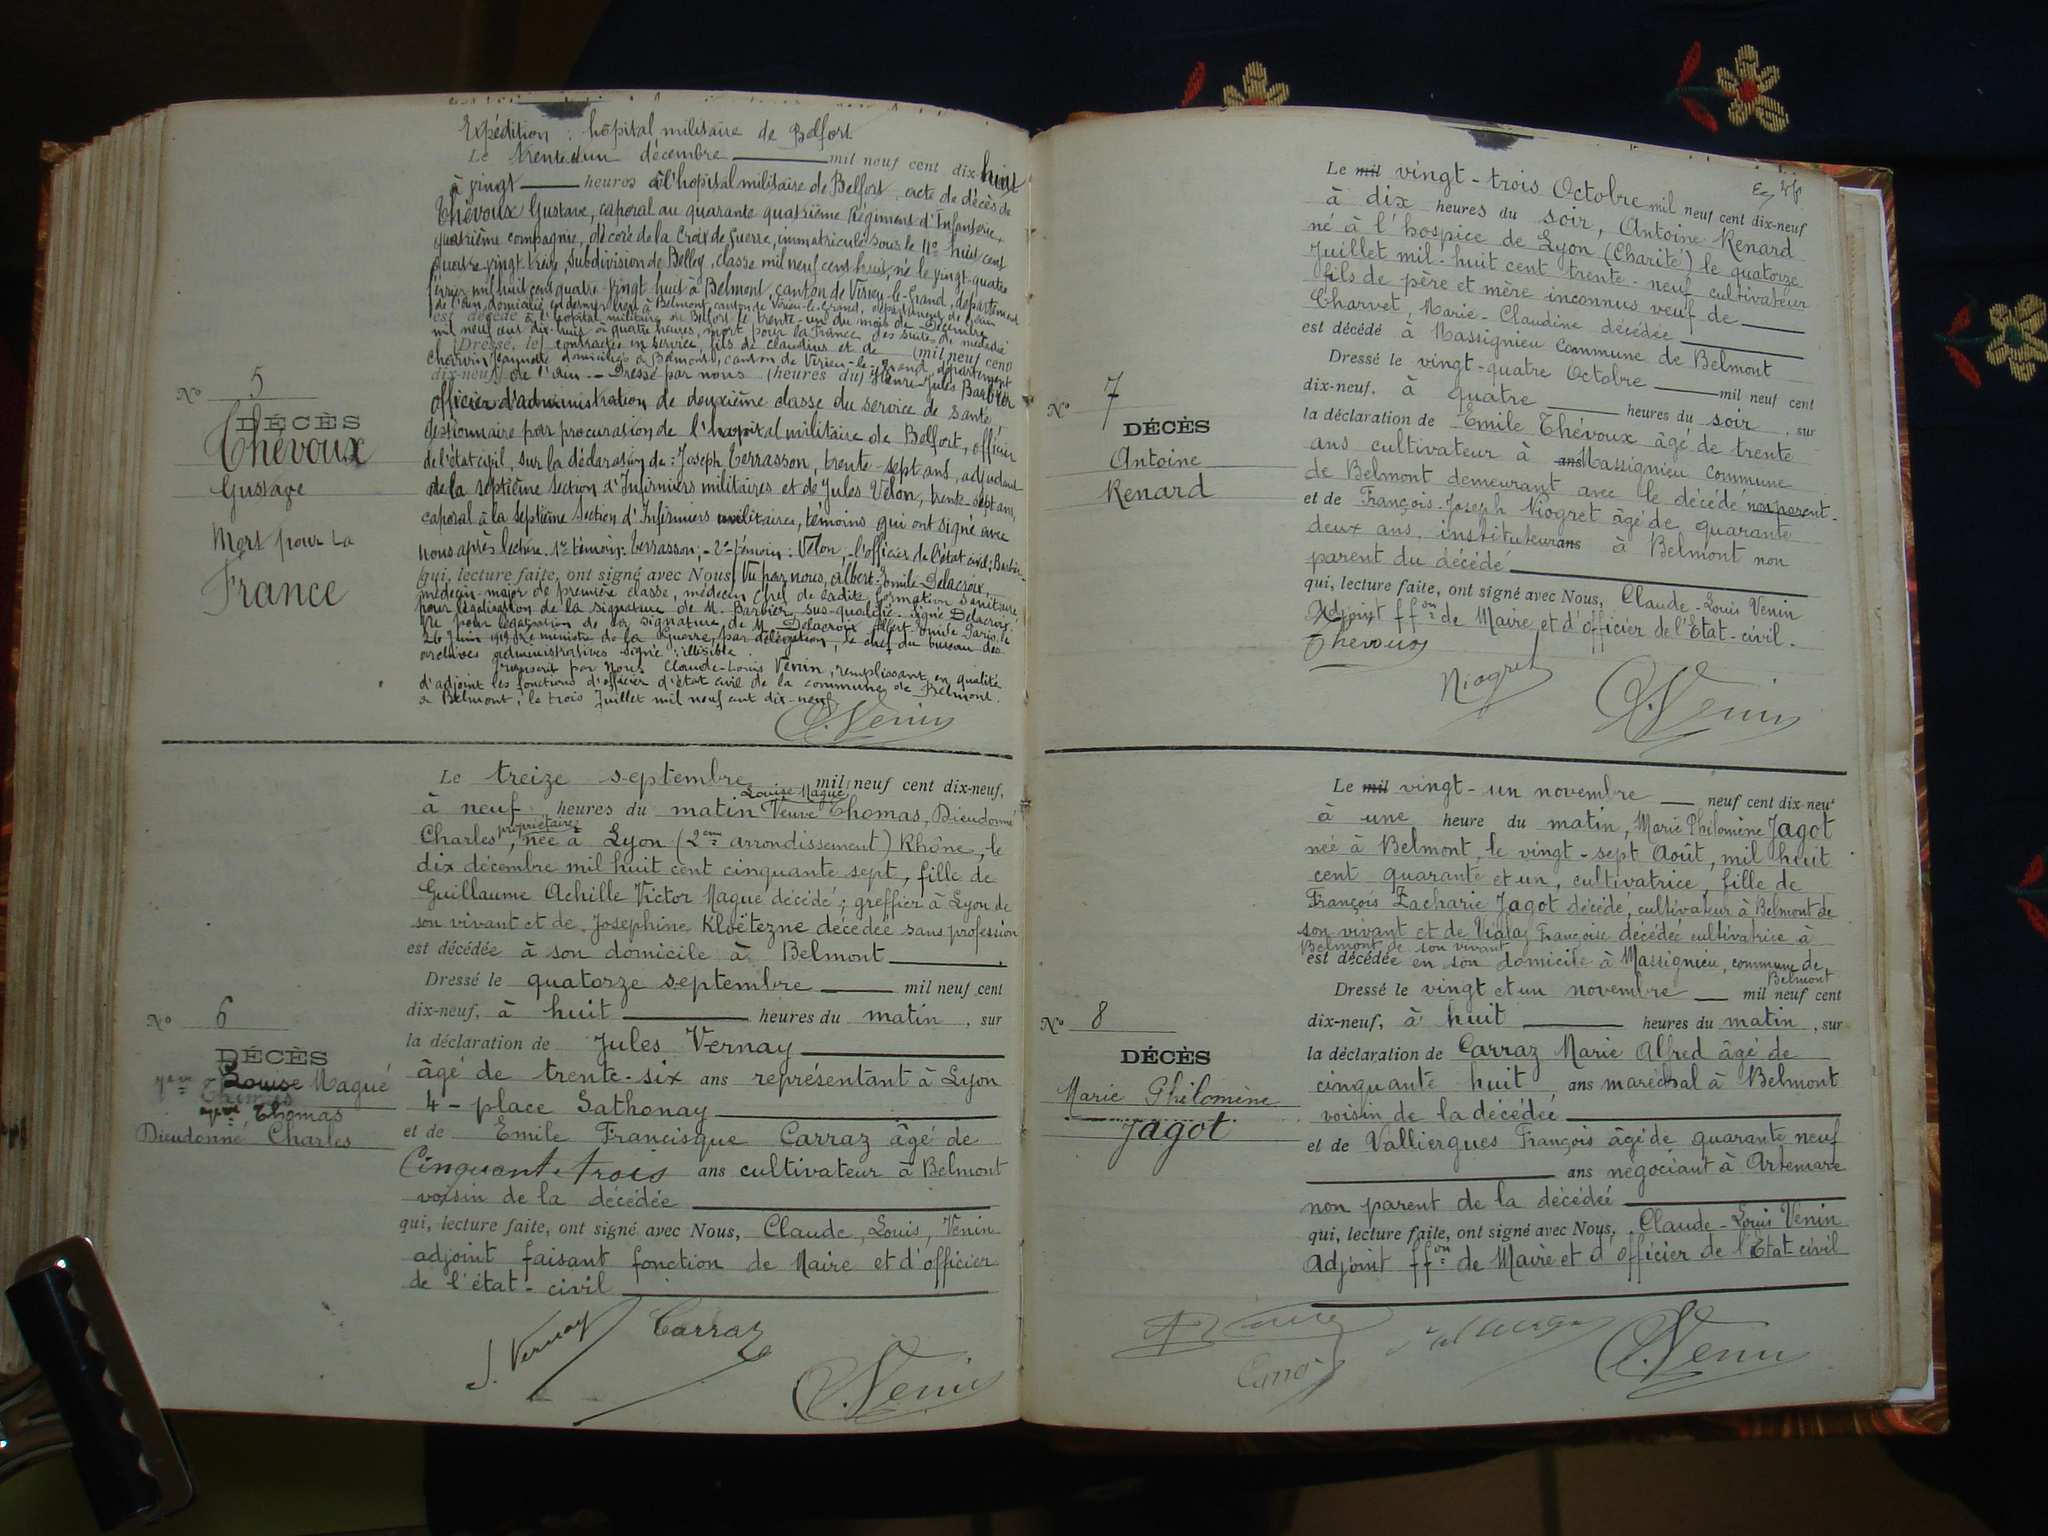 Expédition : hôpital militaire de Belfort
Le trente et un décembre mil neuf cent dix-huit
à vingt heures à l'hôpital militaire de Belfort acte de décès de
Thévoux Gustave, caporal au quarante quatrième Régiment d'Infanterie,
quatrième compagnie, décoré de la Croix de Guerre, immatriculé sous le No huit cent
quatre-vingt treize, subdivision de Belley, classe mil neuf cent huit, né le vingt-quatre
février mil huit cent quatre-vingt huit à Belmont, canton de Virieu-le-Grand, département
de l'Ain, domicilié en dernier lieu à Belmont, canton de Virieu-le-Grand, département de l'Ain
est décédé à l'hôpital militaire de Belfort le trente-un du mois de Décembre
mil neuf cent dix-huit à quatre heures, mort pour la France des suites de maladie
(Dressé, le) contractée en service, fils de Claudius et de (mil neuf cent
Chervin Jeannette domiciliés à Belmont, canton de Virieu-le-Grand, département
dix-neuf) de l'Ain - Dressé par nous (heures du) Henri-Jules Barbier
officier d'administration de deuxième classe du service de santé
gestionnaire par procuration de l'hôpital militaire de Belfort, officier
de l'état civil, sur la déclaration de : Joseph Terrasson, trente-sept ans, adjudant
de la septième section d'Infirmiers militaires et de Jules Velon, trente-sept ans,
caporal à la septième section d'Infirmiers militaires, témoins qui ont signé avec
nous après lecture. 1er témoin : Terrasson ; - 2e témoin : Velon, - l'officier de l'état civil : Barbier -
(qui, lecture faite, ont signé avec Nous) Vu par nous, Albert-Emile Delacroix,
médecin-major de première classe, médecin chef de ladite formation sanitaire
pour légalisation de la signature de M. Barbier sus-qualifié. signé Delacroix
Vu pour légalisation de la signature de M. Delacroix Albert-Emile Paris, le
26 Juin 1919 Le ministre de la Guerre, par délégation, le chef du bureau des
archives administratives signé : illisible
Transcrit par nous Claude-Louis Venin, remplissant en qualité
d'adjoint les fonctions d'officier d'état civil de la commune de Belmont
à Belmont, le trois Juillet mil neuf cent dix-neuf
C. Venin
No 5
DÉCÈS
Thévoux
Gustave
Mort pour la
France
Le treize septembre mil neuf cent dix-neuf,
à neuf heures du matin Louise Magué Veuve Thomas, Dieudonné
Charles, propriétaire, née à Lyon (2eme arrondissement) Rhône, le
dix décembre mil huit cent cinquante sept, fille de
Guillaume Achille Victor Magué décédé ; greffier à Lyon de
son vivant et de Josephine Kloëtezne décédée sans profession
est décédée à son domicile à Belmont
Dressé le quatorze septembre mil neuf cent
dix-neuf, à huit heures du matin, sur
la déclaration de Jules Vernay
âgé de trente-six ans représentant à Lyon
4 - place Sathonay
et de Emile Francisque Carraz âgé de
Cinquante trois ans cultivateur à Belmont
voisin de la décédée
qui, lecture faite, ont signé avec Nous, Claude, Louis, Venin
adjoint faisant fonction de Maire et d'officier
de l'état-civil
J. Vernay Carraz
C. Venin
No 6
DÉCÈS
Louise Magué
Thomas
Dieudonné Charles
Le mil vingt-trois Octobre mil neuf cent dix-neuf
à dix heures du soir, Antoine Renard
né à l'hospice de Lyon (Charité) le quatorze
Juillet mil-huit cent trente-neuf cultivateur
fils de père et mère inconnus veuf de
Charvet, Marie-Claudine décédée
est décédé à Massignieu commune de Belmont
Dressé le vingt-quatre Octobre mil neuf cent
dix-neuf, à quatre heures du soir, sur
la déclaration de Emile Thévoux âgé de trente
ans cultivateur à ans Massignieu commune
de Belmont demeurant avec le décédé non parent
et de François-Joseph Niogret âgé de quarante-
deux ans, instituteur ans à Belmont non
parent du décédé
qui, lecture faite, ont signé avec Nous, Claude-Louis Venin
Adjoint ffon de Maire et d'officier de l'Etat-civil.
Thevoux
Niogret C. Venin
No 7
DÉCÈS
Antoine
Renard
Le mil vingt-un novembre neuf cent dix-neuf
à une heure du matin, Marie Philomène Jagot
née à Belmont, le vingt-sept Août, mil huit
cent quarante et un, cultivatrice, fille de
François Zacharie Jagot décédé, cultivateur à Belmont de
son vivant et de Vialaz Françoise décédée cultivatrice à
Belmont de son vivant
est décédée en son domicile à Massignieu, commune de
Belmont
Dressé le vingt et un novembre mil neuf cent
dix-neuf, à huit heures du matin, sur
la déclaration de Carraz Marie Alfred âgé de
cinquante huit ans maréchal à Belmont
voisin de la décédée
et de Valliergues François âgé de quarante neuf
ans négociant à Artemare
non parent de la décédée
qui, lecture faite, ont signé avec Nous, Claude-Louis Venin
Adjoint ffon de Maire et d'officier de l'Etat civil
C. Venin
No 8
DÉCÈS
Marie Philomène
Jagot